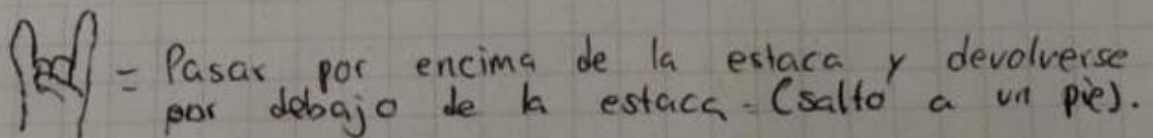 = Pasar por encima de la estaca y devolverse
por debajo de la estaca. (salto a un pie).